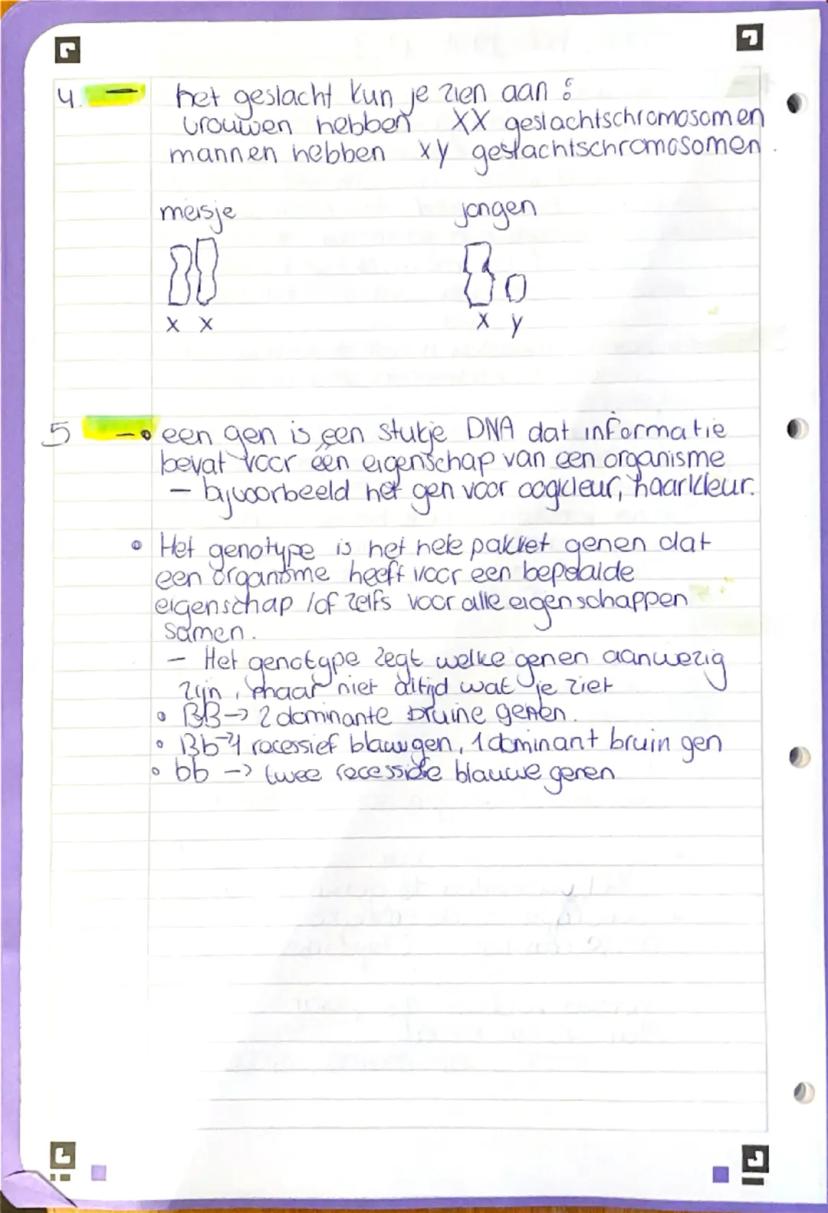 4. — het geslacht kun je zien aan :
vrouwen hebben XX geslachtschromosomen
mannen hebben xy geslachtschromosomen.
meisje jongen
x x x y
5 — een gen is een stukje DNA dat informatie
bevat voor één eigenschap van een organisme
— bijvoorbeeld het gen voor oogkleur, haarkleur.
• Het genotype is het hele pakket genen dat
een organisme heeft voor een bepaalde
eigenschap /of zelfs voor alle eigenschappen
samen.
— Het genotype zegt welke genen aanwezig
zijn, maar niet altijd wat je ziet
• BB → 2 dominante bruine genen.
• Bb → 1 recessief blauw gen, 1 dominant bruin gen
• bb → twee recessieve blauwe genen